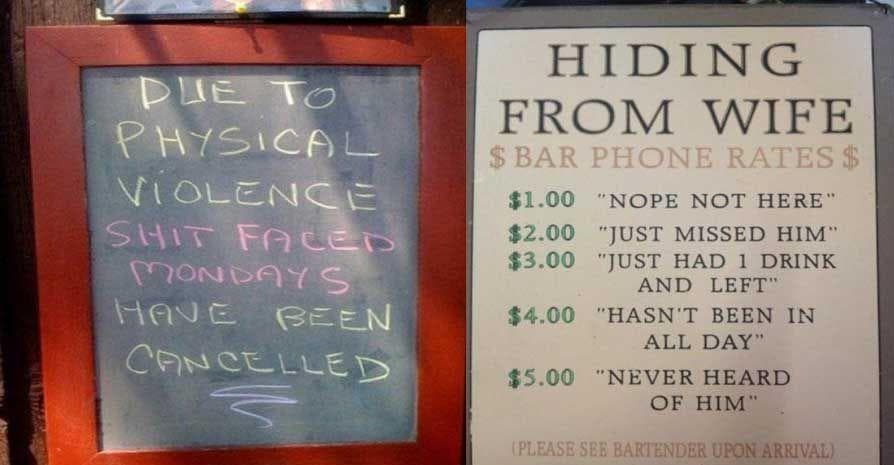 DUE TO
PHYSICAL
VIOLENCE
SHIT FACED
MONDAYS
HAVE BEEN
CANCELLED
HIDING
FROM WIFE
$ BAR PHONE RATES $
$1.00 "NOPE NOT HERE"
$2.00 "JUST MISSED HIM"
$3.00 "JUST HAD 1 DRINK
AND LEFT"
$4.00 "HASN'T BEEN IN
ALL DAY"
$5.00 "NEVER HEARD
OF HIM"
(PLEASE SEE BARTENDER UPON ARRIVAL)